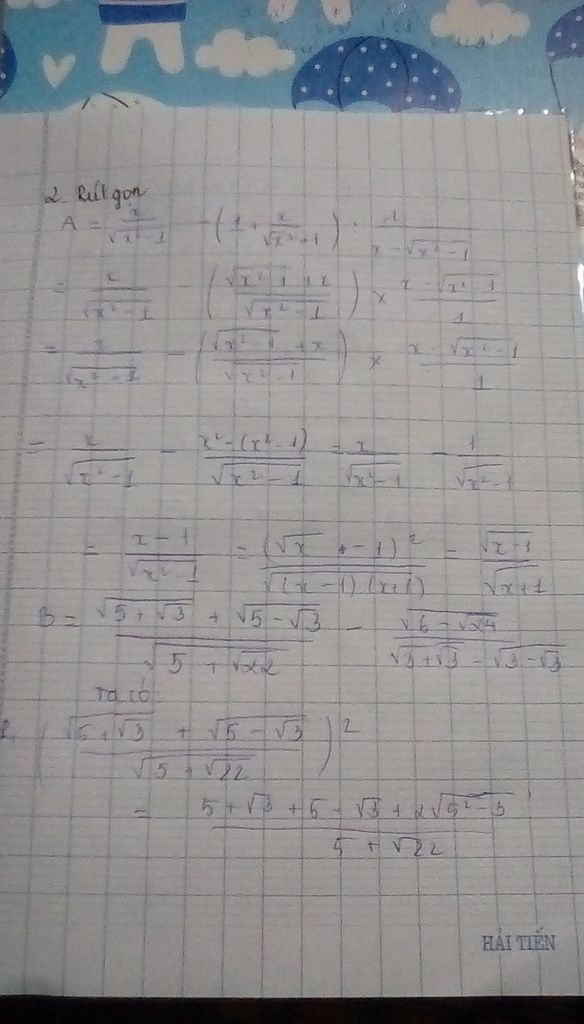 2. Rút gọn
A = x/√(x²-1) - (1 + x/√(x²+1)) : 1/(x - √(x²-1))
= x/√(x²-1) - ((√(x²-1) + x)/√(x²-1)) × (x - √(x²-1))/1
= x/√(x²-1) - ((√(x²-1) + x)/√(x²-1)) × (x - √(x²-1))/1
= x/√(x²-1) - (x²-(x²-1))/√(x²-1) = x/√(x²-1) - 1/√(x²-1)
= (x-1)/√(x²-1) = (√(x-1))²/√((x-1)(x+1)) = √(x-1)/√(x+1)
B = (√(5+√3) + √(5-√3))/√(5+√22) - √(6-√24)/(√(3+√3) - √(3-√3))
Ta có
((√(5+√3) + √(5-√3))/√(5+√22))²
= (5+√3+5-√3+2√(5²-3))/(5+√22)
HẢI TIẾN